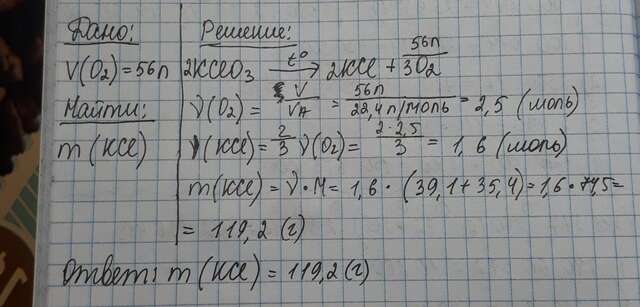 Дано:
V(O₂) = 56л
Найти:
m (KCl)
Решение:
56л
2KClO₃ t° → 2KCl + 3O₂
ν(O₂) = V/VA = 56л/22,4 л/моль = 2,5 (моль)
ν(KCl) = 2/3 ν(O₂) = 2·2,5/3 = 1,6 (моль)
m(KCl) = ν · M = 1,6 · (39,1+35,4) = 1,6 · 74,5 =
= 119,2 (г)
Ответ: m (KCl) = 119,2 (г)